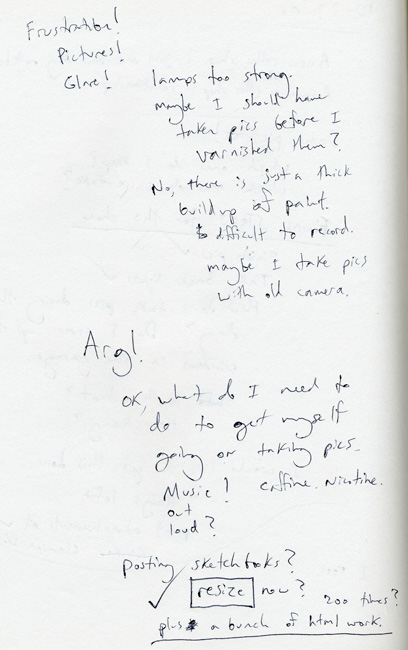 Frustration!
Pictures!
Glare!
lamps too strong.
maybe I should have
taken pics before I
varnished them?
No, there is just a thick
build up of paint.
difficult to record.
maybe I take pics
with old camera.
Arg!
OK, what do I need to
do to get myself
going on taking pics.
Music! caffine. Nicotine.
out
loud?
posting sketchbooks?
resize now? 200 times?
plus a bunch of html work.